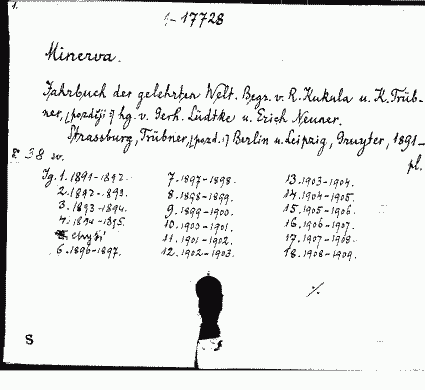 1.
1-17728
Minerva.
Jahrbuch der gelehrten Welt. Begr. v. R. Kukula u. K. Trüb-
ner, [později:] hg. v. Gerh. Lüdtke u. Erich Neuner.
Strassburg, Trübner, [pozd.:] Berlin u. Leipzig, Gruyter, 1891-
pl.
8° 38 sv.
Jg. 1. 1891-1892. 7. 1897-1898. 13. 1903-1904.
2. 1892-1893. 8. 1898-1899. 14. 1904-1905.
3. 1893-1894. 9. 1899-1900. 15. 1905-1906.
4. 1894-1895. 10. 1900-1901. 16. 1906-1907.
chybí 11. 1901-1902. 17. 1907-1908.
6. 1896-1897. 12. 1902-1903. 18. 1908-1909.
./.
S